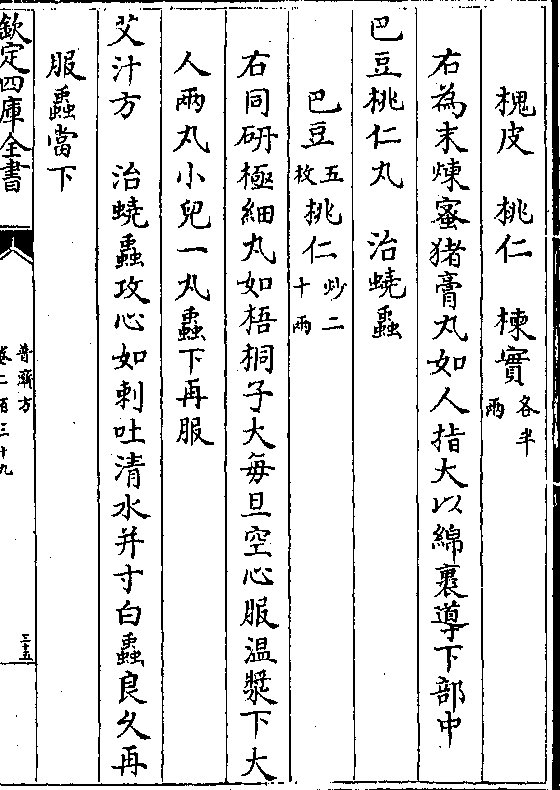 槐皮　桃仁　楝實各半兩
右為末煉蜜猪膏丸如人指大以綿裹導下部中
巴豆桃仁丸　治蟯蟲
巴豆五枚桃仁炒二十兩
右同研極細丸如梧桐子大每旦空心服温漿下大
人兩丸小兒一丸蟲下再服
艾汁方　治蟯蟲攻心如刺吐清水并寸白蟲良久再
服蟲當下
欽定四庫全書
普濟方
卷二百三十九
三十五